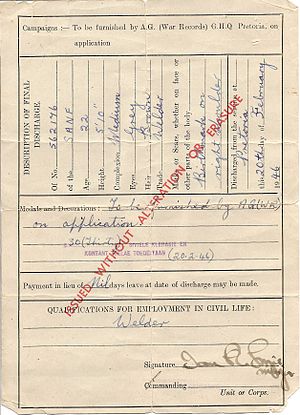 Campaigns :— To be furnished by A.G. (War Records) G.H.Q Pretoria, on
application
DESCRIPTION OF FINAL DISCHARGE.
Of No. 562176
of the SANF
Age, 22
Height, 5'10"
Complexion, Medium
Eyes, Grey
Hair, Brown
Trade, Welder
Marks or Scars, whether on face or
other parts of the body
Birthmark on
right shoulder
Discharged from the service at
Pretoria
this 20th day of February
1946
Medals and Decorations : To be furnished by AG(WR)
on application
£30 (Thirty
SIVIELE KLERASIE EN
KONTANT TOELAE TOEGESTAAN (20-2-46)
Payment in lieu of Nil days leave at date of discharge may be made.
ISSUED WITHOUT ALTERATION OR ERASURE
QUALIFICATIONS FOR EMPLOYMENT IN CIVIL LIFE :
Welder
Signature
Commanding
Unit or Corps.